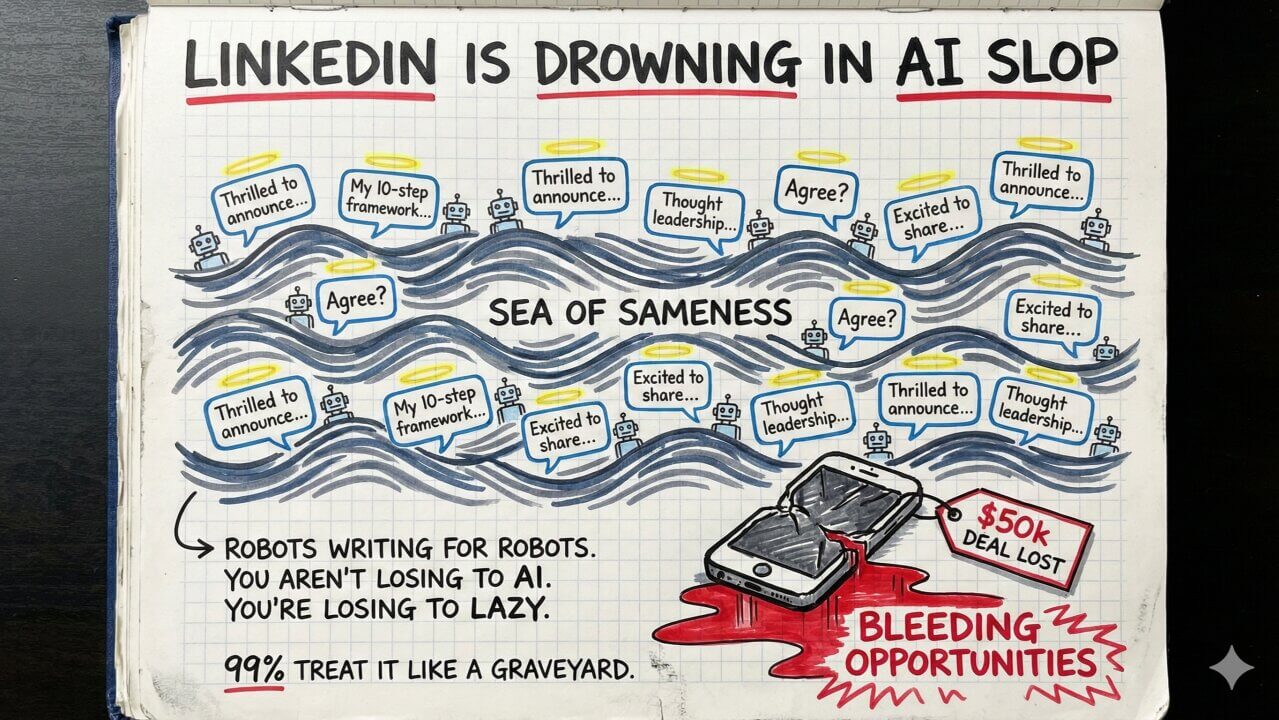 LINKEDIN IS DROWNING IN AI SLOP
Thrilled to
announce...
My 10-step
framework...
Thrilled to
announce...
Thought
leadership...
Agree?
Excited to
share...
Thrilled to
announce...
Agree?
SEA OF SAMENESS
Agree?
Excited to
share...
Thrilled to
announce...
My 10-step
framework...
Excited to
share...
Excited to
share...
Thought
leadership...
Thrilled to
announce...
Thought
leadership...
ROBOTS WRITING FOR ROBOTS.
YOU AREN'T LOSING TO AI.
YOU'RE LOSING TO LAZY.
99% TREAT IT LIKE A GRAVEYARD.
$50k
DEAL LOST
BLEEDING
OPPORTUNITIES